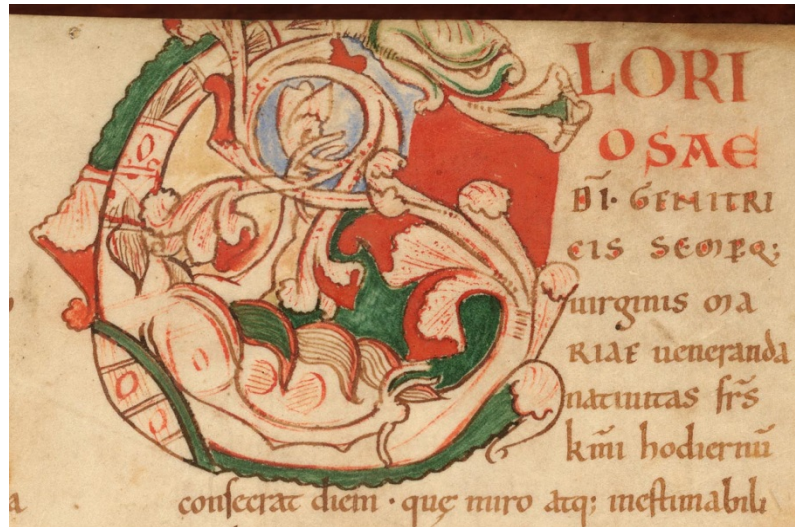 GLORI
OSAE
D̄I· GENITRI
CIS SEMPQ;
uirginis MA
RIAE ueneranda
natiuitas fr̄s
km̄i hodiernū
consecrat diem · quę miro atq; inestimabili